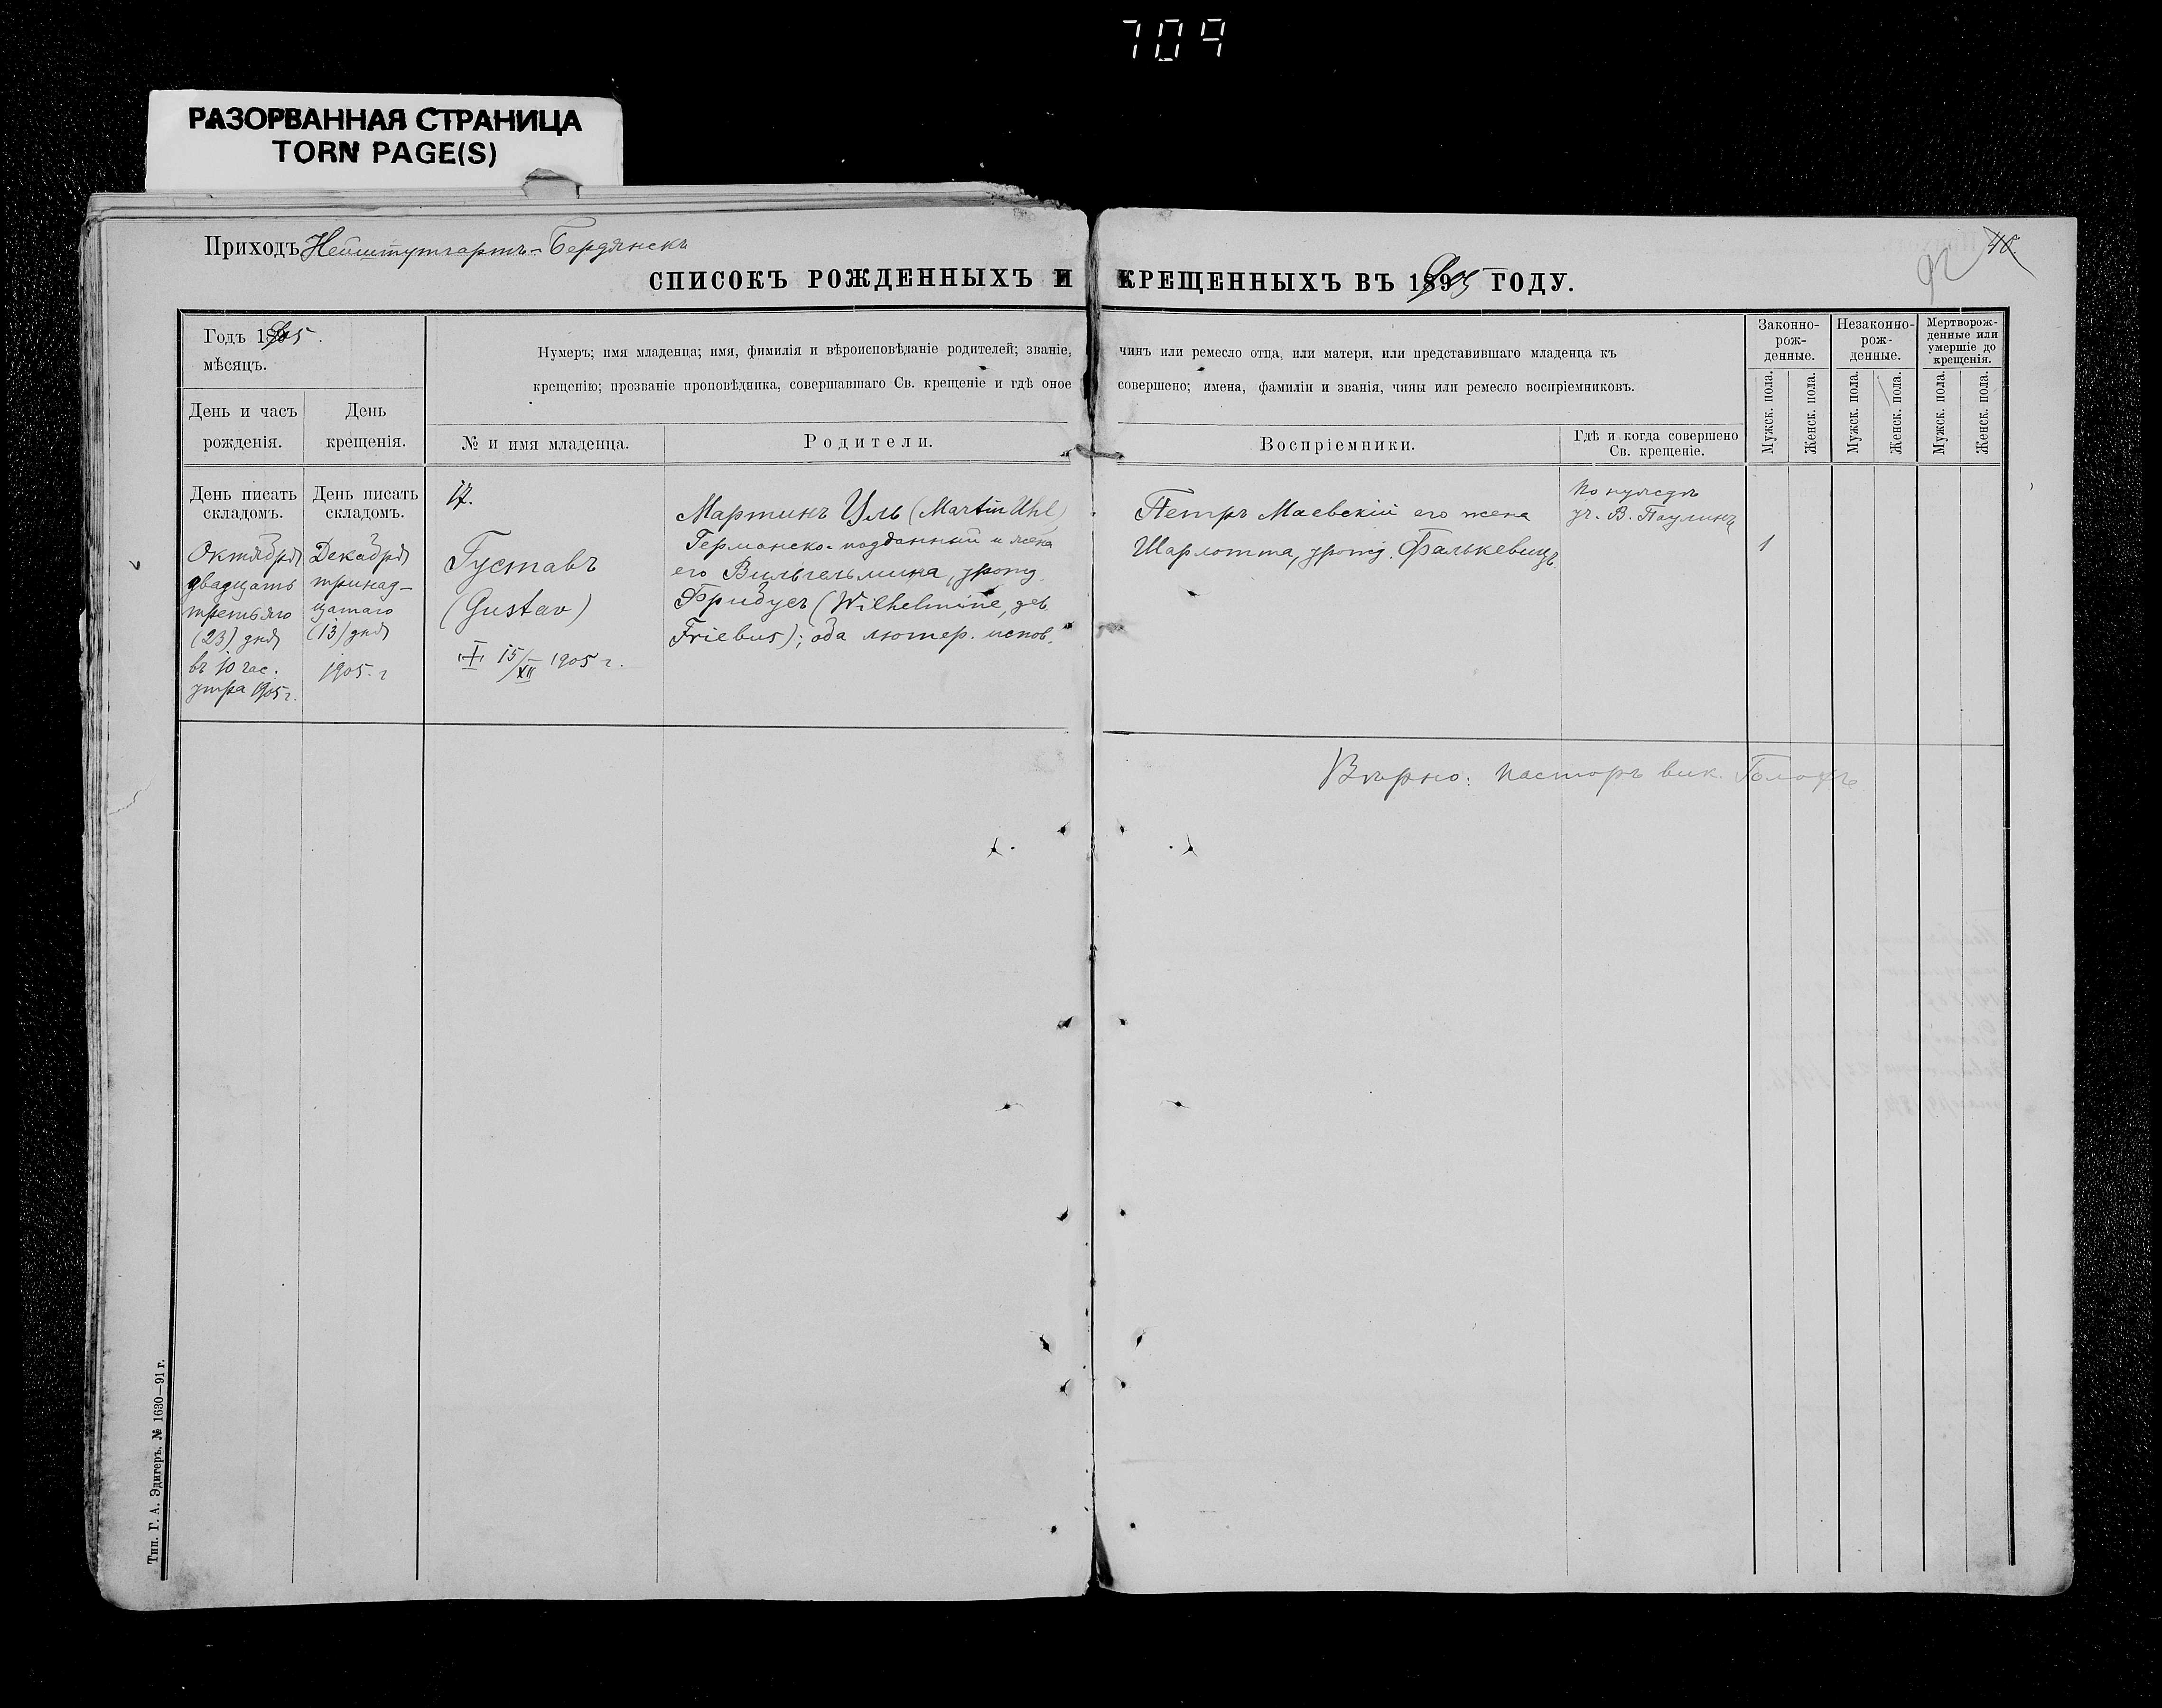 709
РАЗОРВАННАЯ СТРАНИЦА
TORN PAGE(S)
Приходъ Нейштутгартъ-Бердянскъ
40
92
СПИСОКЪ РОЖДЕННЫХЪ И КРЕЩЕННЫХЪ ВЪ 1905 ГОДУ.
Годъ 1905.
мѣсяцъ.
День и часъ
рожденія.
День
крещенія.
Нумеръ; имя младенца; имя, фимилія и вѣроисповѣданіе родителей; званіе, чинъ или ремесло отца, или матери, или представившаго младенца къ
крещенію; прозваніе проповѣдника, совершавшаго Св. крещеніе и гдѣ оное совершено; имена, фамиліи и званія, чины или ремесло воспріемниковъ.
№ и имя младенца.
Родители.
Воспріемники.
Гдѣ и когда совершено
Св. крещеніе.
Законно-
рож-
денные.
Незаконно-
рож-
денные.
Мертворож-
денные или
умершіе до
крещенія.
Мужск. пола.
Женск. пола.
Мужск. пола.
Женск. пола.
Мужск. пола.
Женск. пола.
День писать
складомъ.
Октября
двадцать
третьяго
(23) дня
въ 10 час.
утра 1905 г.
День писать
складомъ.
Декабря
тринад-
цатаго
(13) дня
1905 г
17.
Густавъ
(Gustav)
15/XII 1905 г.
Мартинъ Уль (Martin Uhl)
Германско-подданный и жена
его Вильгельмина, урожд.
Фрибусъ (Wilhelmine, geb.
Friebus); оба лютер. испов.
Петръ Маевскій его жена
Шарлотта, урожд. Фалькевичъ.
По нуждѣ
уч. В. Паулинъ
1
Вѣрно: пасторъ вик.
Тип. Г. А. Эдигеръ. № 1630—91 г.